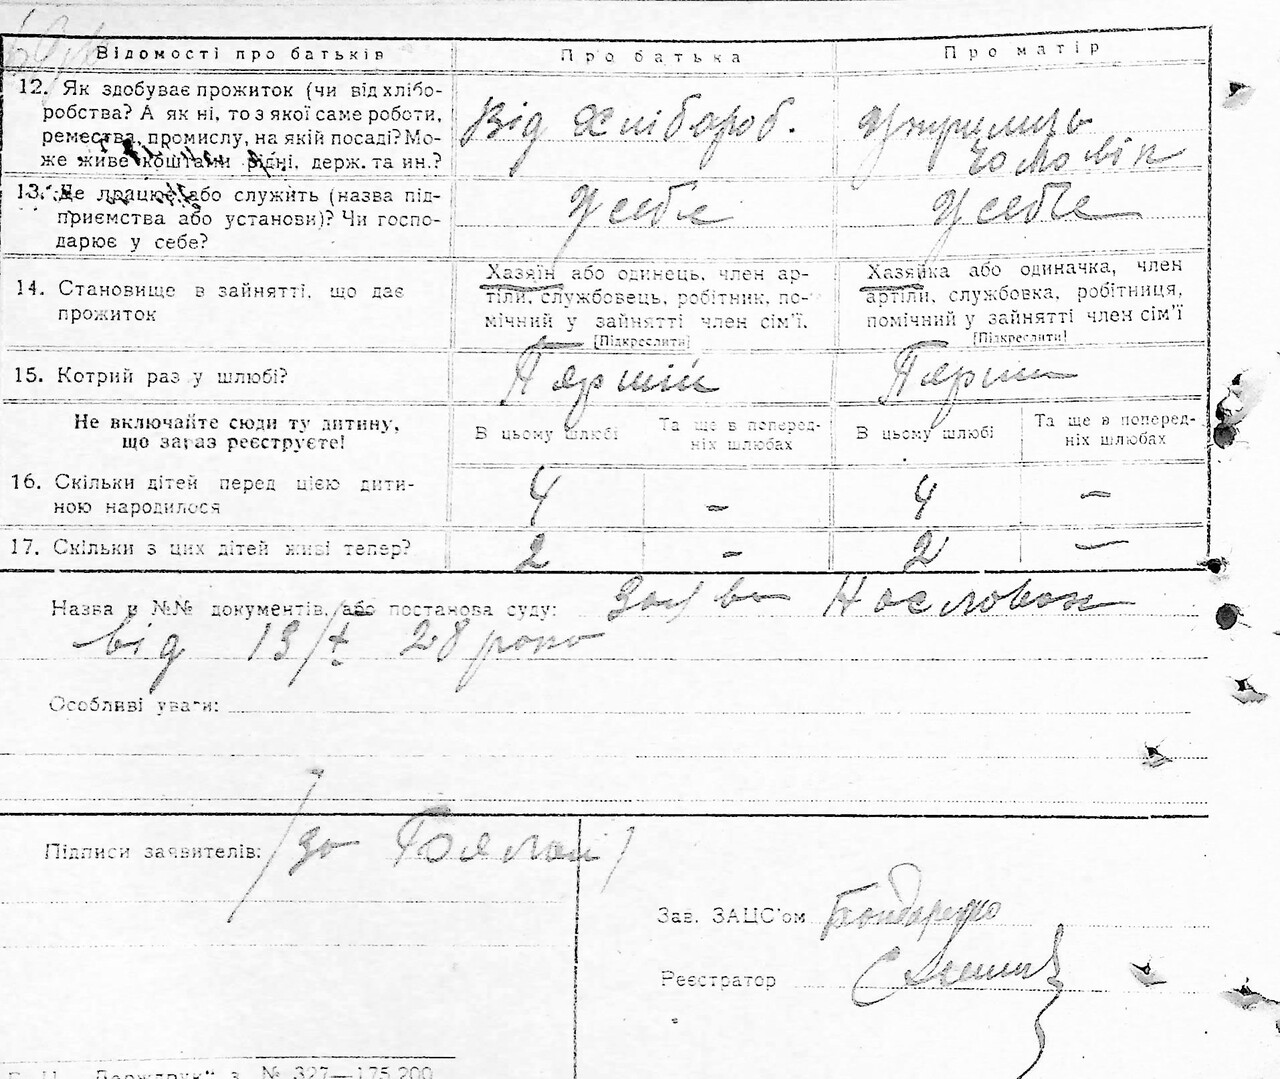 Відомості про батьків
Про батька
Про матір
12. Як здобуває прожиток (чи від хлібо-
робства? А як ні, то з якої саме роботи,
ремества, промислу, на якій посаді? Мо-
же живе коштами рідні, держ. та ин.?
Від хлібороб.
чоловік
13. Де працює або служить (назва під-
приємства або установи)? Чи госпо-
дарює у себе?
У себе
У себе
14. Становище в зайнятті, що дає
прожиток
Хазяїн або одинець, член ар-
тіли, службовець, робітник, по-
мічний у зайнятті член сім'ї.
[Підкреслити]
Хазяйка або одиначка, член
артіли, службовка, робітниця,
помічний у зайнятті член сім'ї
[Підкреслити]
15. Котрий раз у шлюбі?
Перший
Перши
Не включайте сюди ту дитину,
що зараз реєструєте!
В цьому шлюбі
Та ще в поперед-
ніх шлюбах
В цьому шлюбі
Та ще в поперед-
ніх шлюбах
16. Скільки дітей перед цією дити-
ною народилося
4 - 4 -
17. Скільки з цих дітей живі тепер?
2 - 2 -
Назва й №№ документів, або постанова суду:
від 19/X 28 року
Особливі уваги:
Підписи заявителів:
Зав. ЗАЦС'ом Бондаренко
Реєстратор
Держдрук" з. № 327—175.200